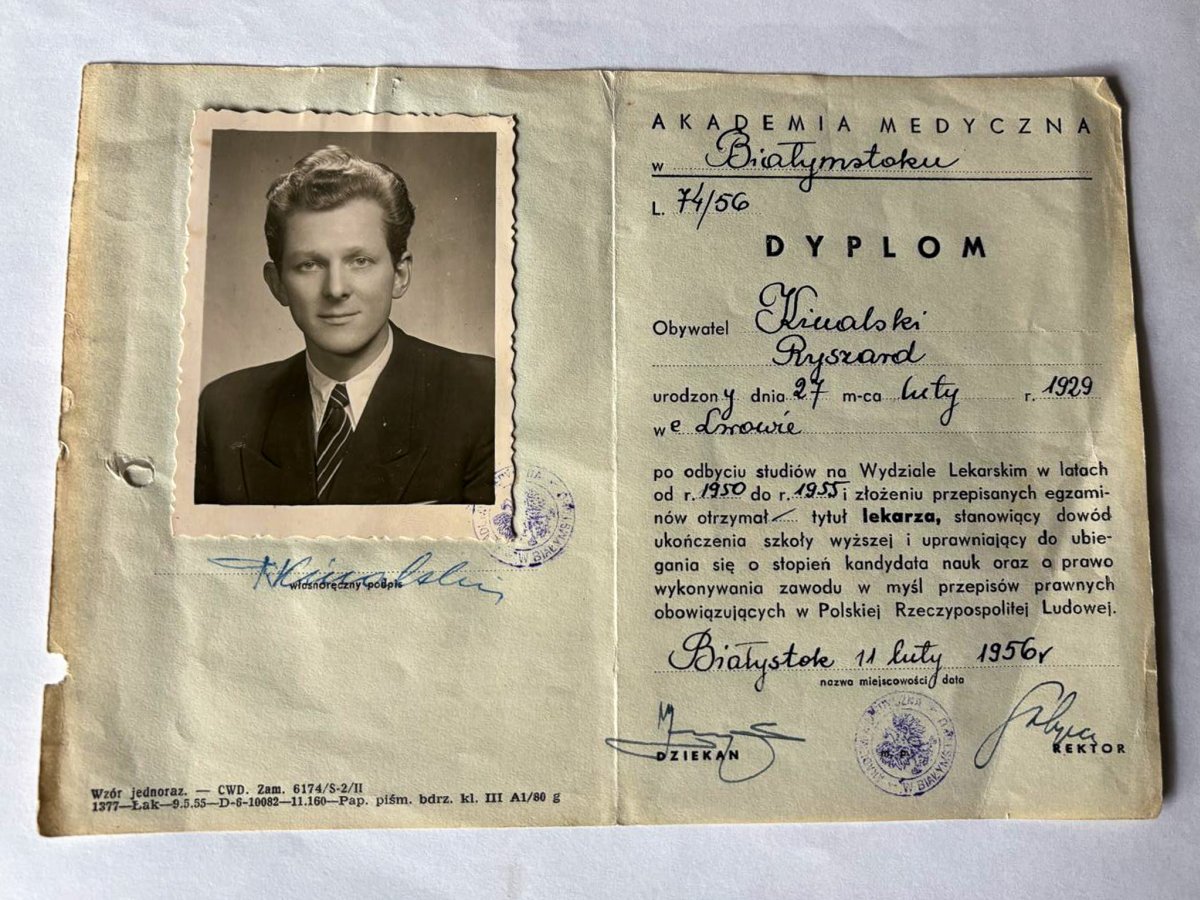 własnoręczny podpis
Wzór jednoraz. — CWD. Zam. 6174/S-2/II
1377—Łak—9.5.55—D-6-10082—11.160—Pap. piśm. bdrz. kl. III A1/80 g
AKADEMIA MEDYCZNA
w Białymstoku
L. 74/56
DYPLOM
Obywatel Kinalski
Ryszard
urodzony dnia 27 m-ca luty r. 1929
we Lwowie
po odbyciu studiów na Wydziale Lekarskim w latach
od r. 1950 do r. 1955 i złożeniu przepisanych egzami-
nów otrzymał tytuł lekarza, stanowiący dowód
ukończenia szkoły wyższej i uprawniający do ubie-
gania się o stopień kandydata nauk oraz o prawo
wykonywania zawodu w myśl przepisów prawnych
obowiązujących w Polskiej Rzeczypospolitej Ludowej.
Białystok 11 luty 1956 r
nazwa miejscowości data
DZIEKAN
m. p.
REKTOR